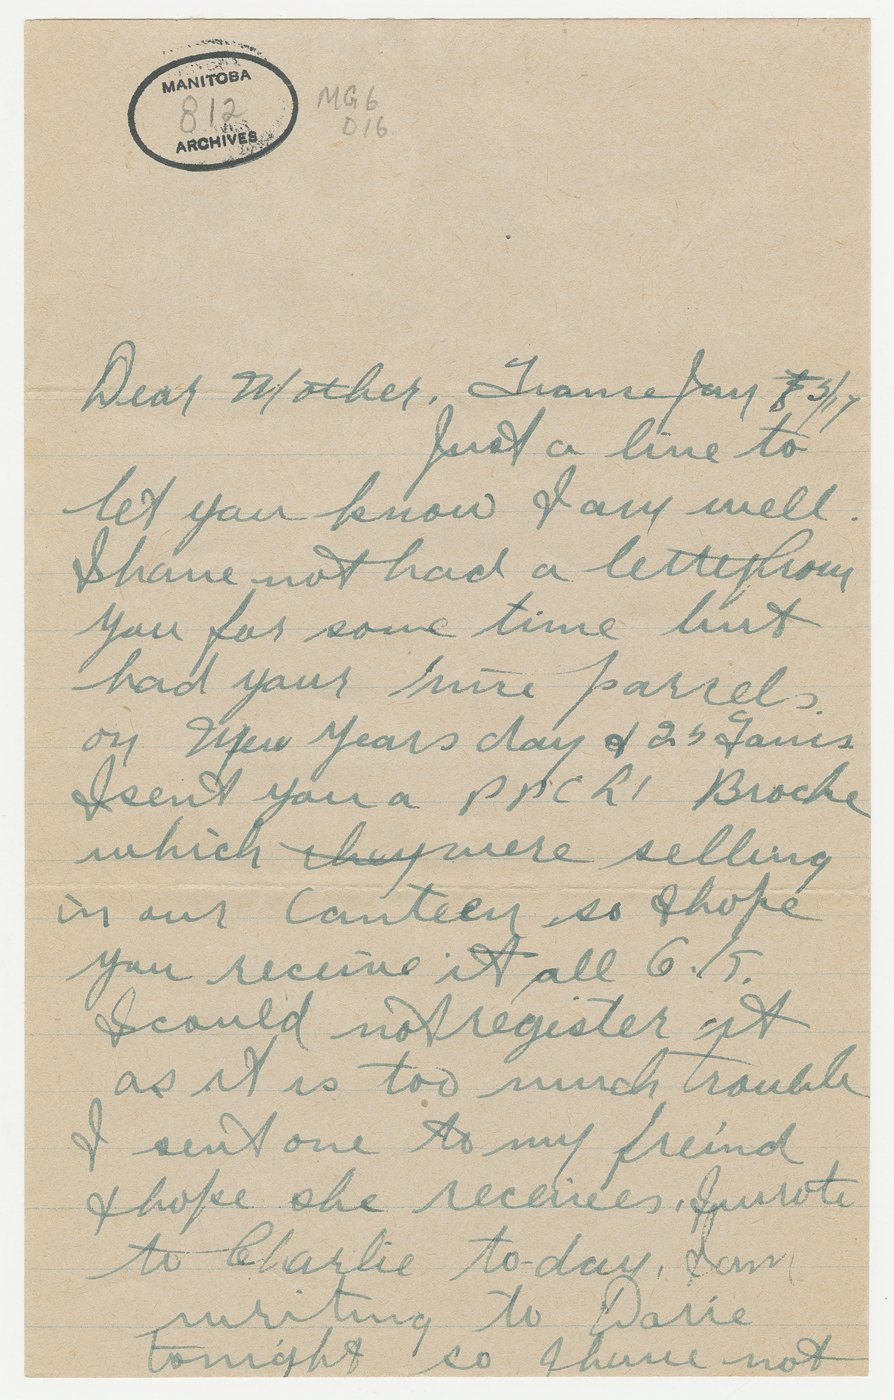 MANITOBA
812
ARCHIVES
MG6
D16
Dear Mother. France Jan 3/17
Just a line to
let you know I am well.
I have not had a letter from
you for some time but
had your nice parcels.
on New Years day & 25
I sent you a PPCLI Broche
which they were selling
in our Canteen so I hope
you receive it all O.K.
I could not register it
as it is too much trouble
I sent one to my freind
& hope she receives. I wrote
to Charlie to-day. I am
writing to
tonight so I have not